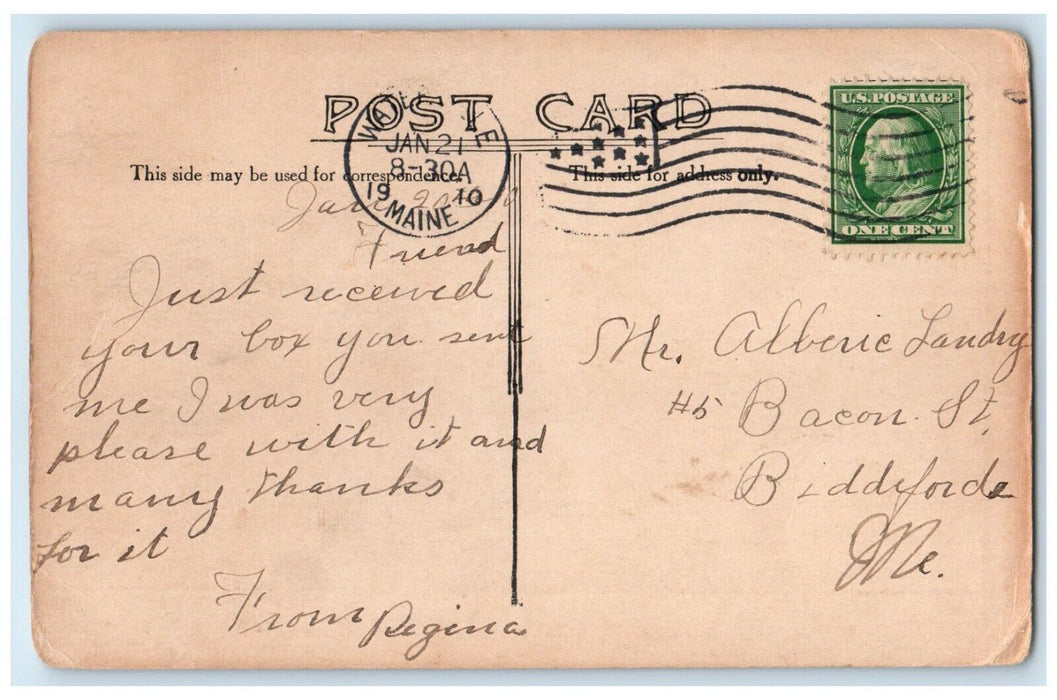 POST CARD
JAN 21
8-30A
19 10
MAINE
U.S. POSTAGE
ONE CENT
This side may be used for correspondence.
This side for address only.
Friend
Just received
your box you sent
me I was very
please with it and
many thanks
for it
From Regina
Mr. Alberic Landry
#5 Bacon St,
Biddeford
Me.